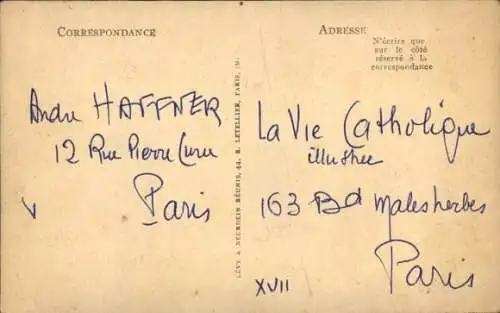 CORRESPONDANCE
André HAFFNER
12 Rue Pierre Curie
Paris
V
LÉVY & NEURDEIN RÉUNIS, 44, R. LETELLIER, PARIS, IMP.
ADRESSE
N'écrire que
sur le côté
réservé à la
correspondance
La Vie Catholique
illustrée
163 Bd Malesherbes
Paris
XVII